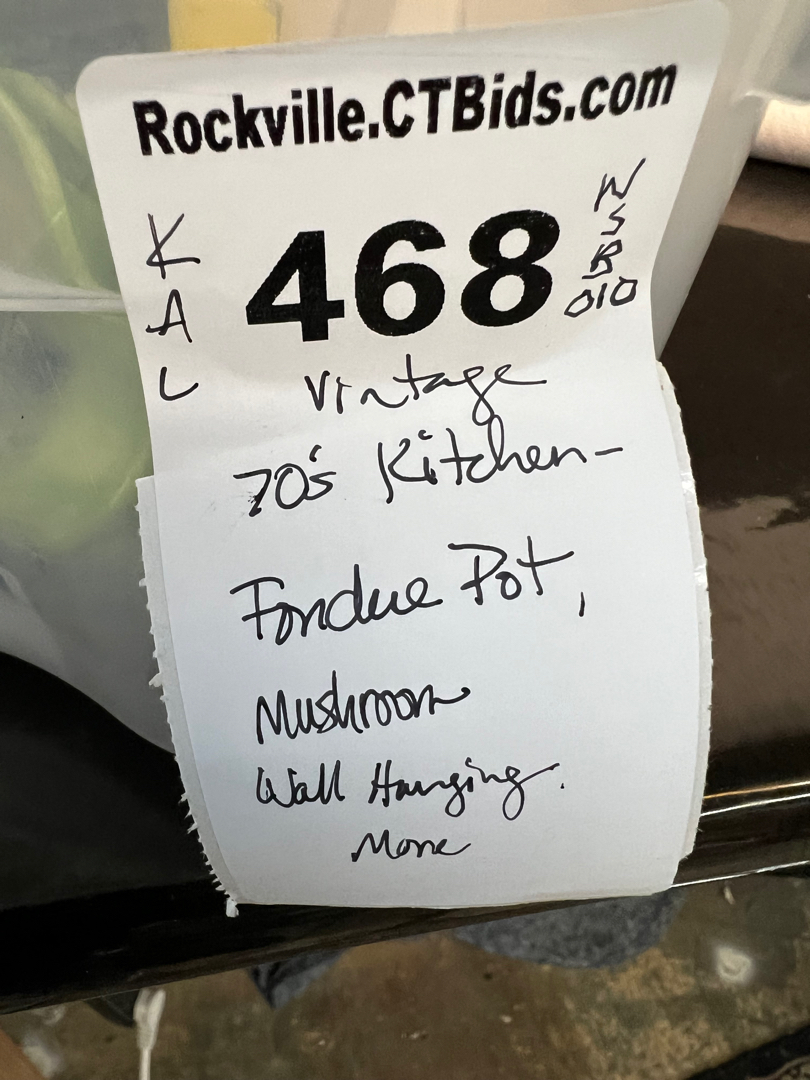 Rockville.CTBids.com
KAL
468
WSB010
Vintage
70's Kitchen-
Fondue Pot,
Mushroom
Wall Hanging.
More